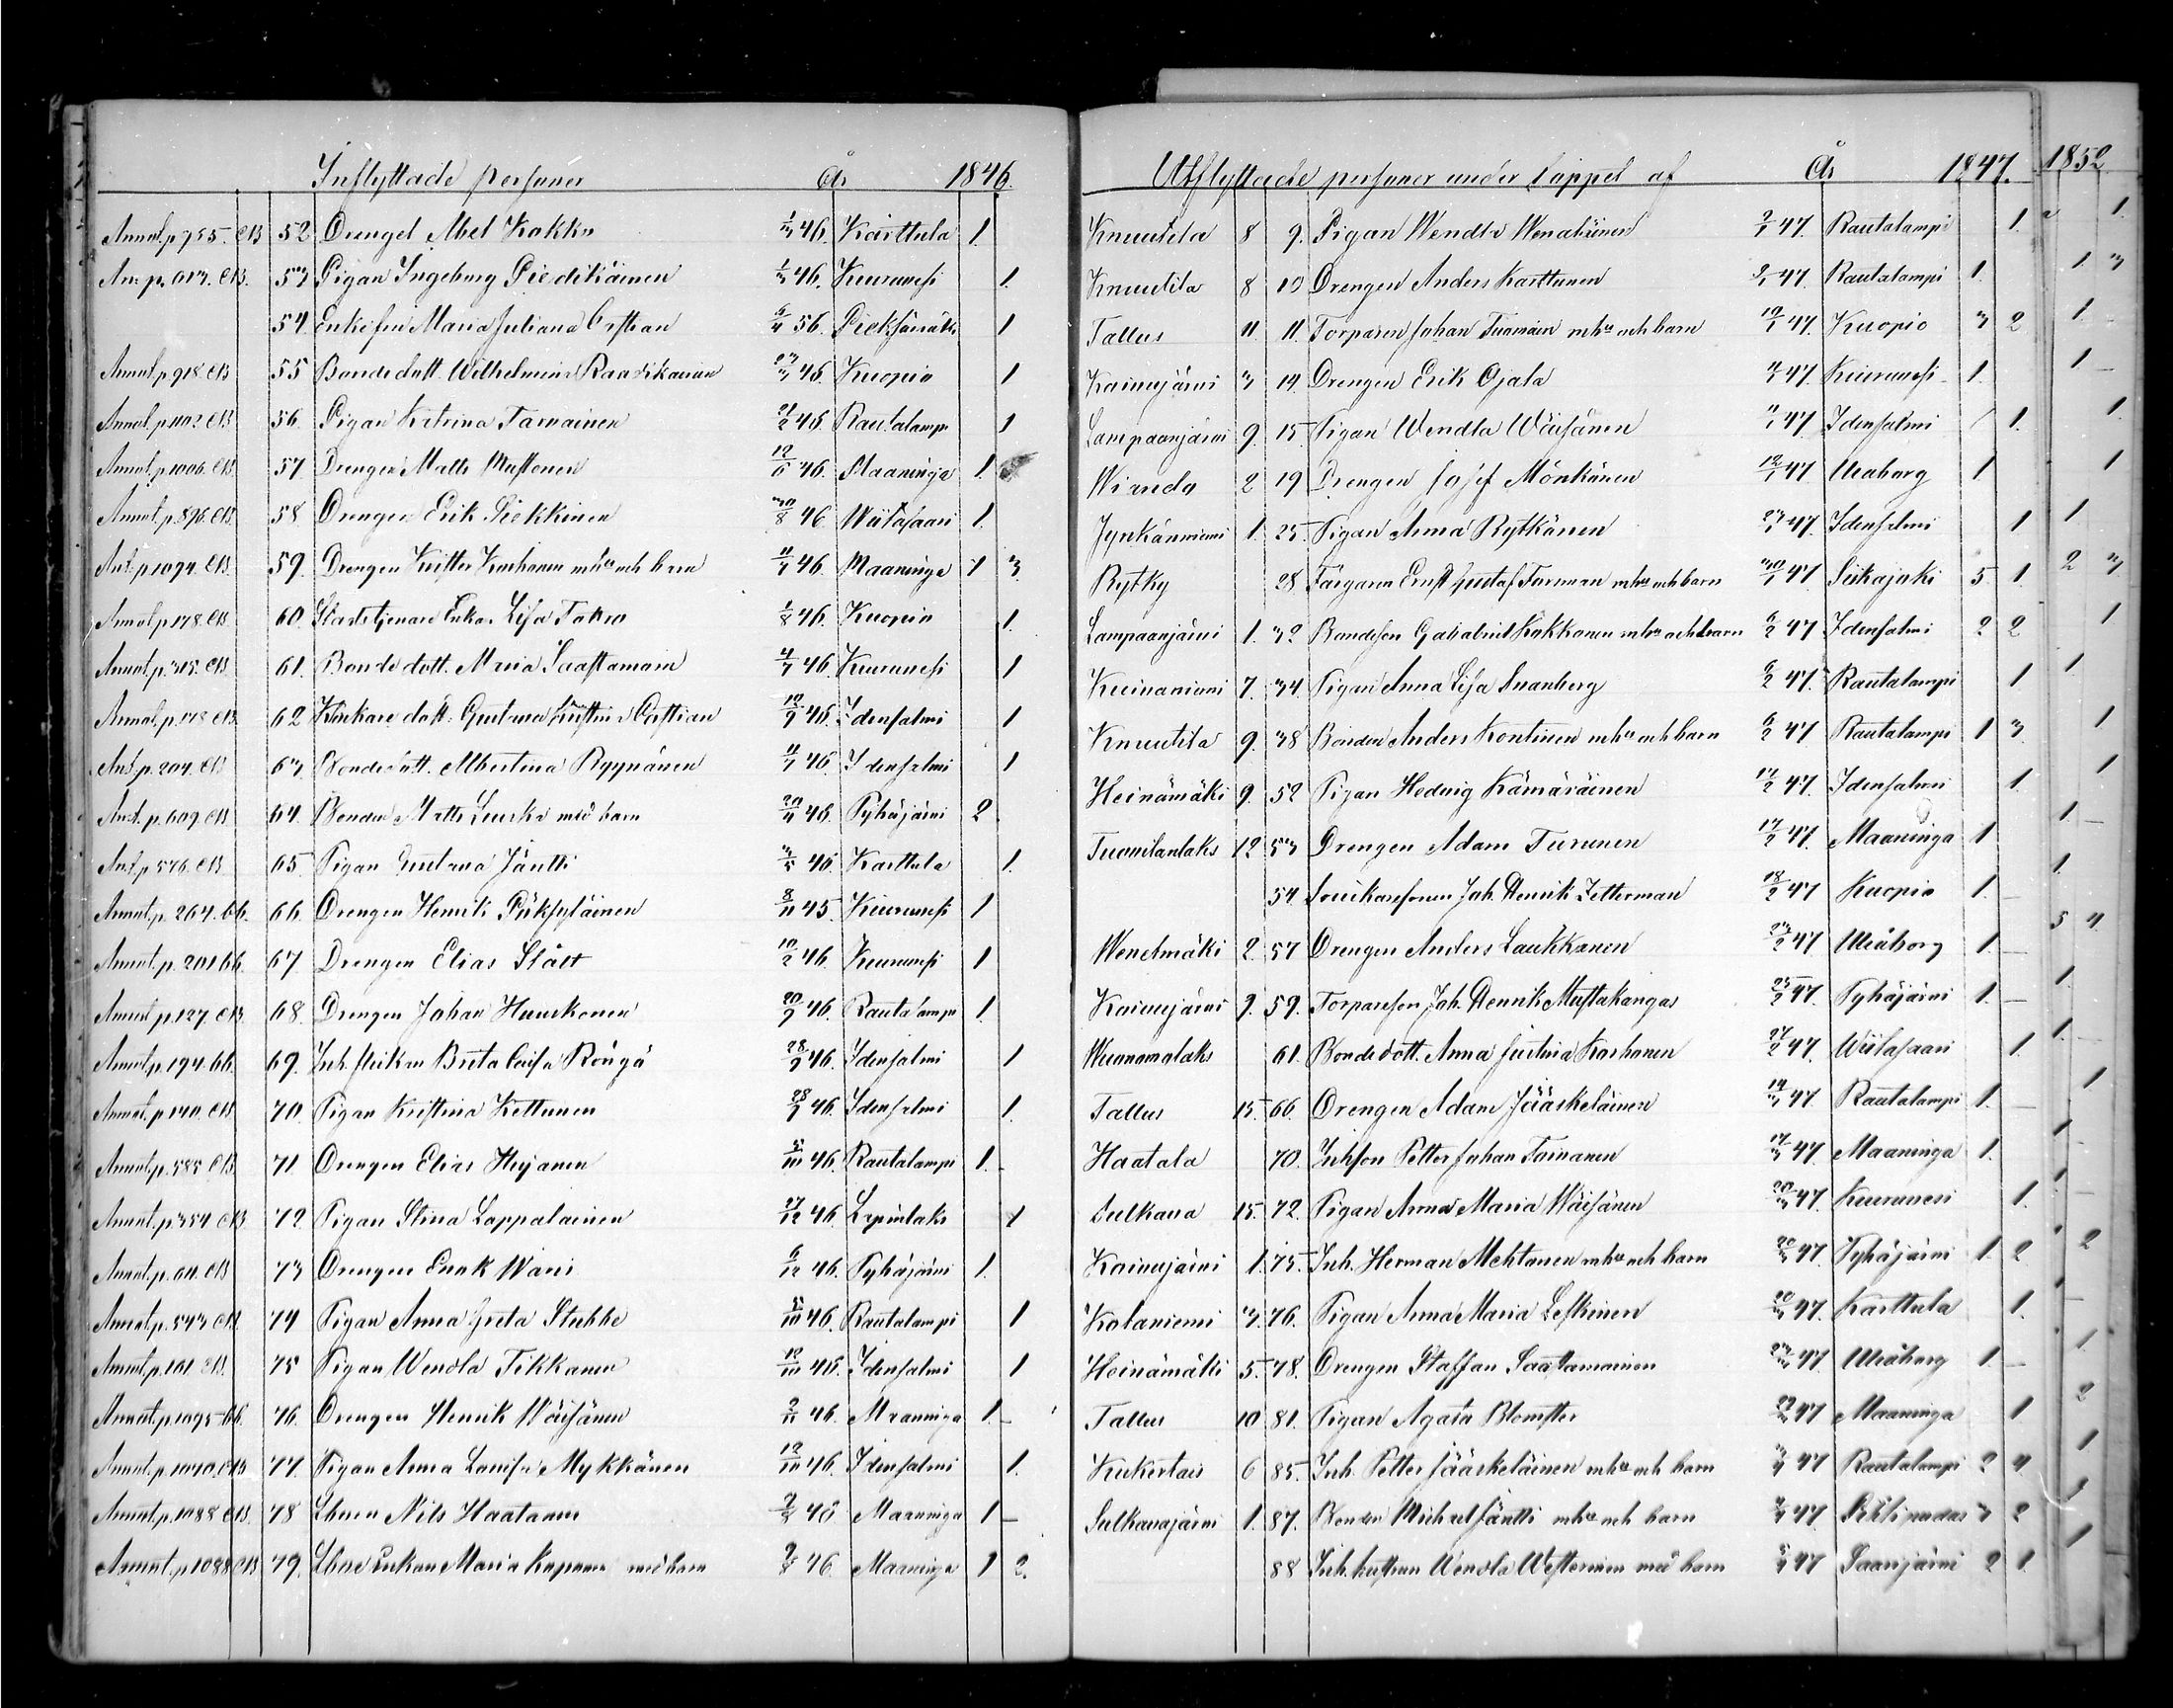 Inflyttade personer År 1846.
Annot. p 755. CB. 52 Drengen Abel Kokko 46. Karttula 1.
An: p. 613. CB. 53 Pigan Ingeborg Piedikäinen 46. Kiuruvesi 1.
54 Enkefru Maria Juliana 56. Pieksämäki 1
Annot. p 918. CB 55 Bondedott. Wilhelmina 23/3 46. Kuopio 1
Annot. p 1102 CB 56. Pigan Katrina Tarvainen 46 Rautalampi 1
Annot. p. 1006. CB 57. Drengen Matts Mustonen 12/6 46. Maaninga 1.
Annot. p. 896. CB. 58 Drengen Erik Siekkinen 30/8 46 Wiitasaari 1.
Ant. p. 1094. CB. 59. Drengen Krister Korhonen m hu och barn 46 Maaninga 1 3.
Annot. p. 178. CB. 60. Enkan Lisa 1/8 46. Kuopio 1.
Annot. p. 315. CB. 61. Bondedott. Maria Saastamoin 46 Kiuruvesi 1
Annot. p. 178 CB. 62 Klockare dott. Gustava Kristina 46. Idensalmi 1
Ant. p. 204. CB 63 Bondedott. Albertina Ryynänen 46. Idensalmi 1
Ant. p. 609. CB 64. Bonden Matts Leuski med barn 46. Pyhäjärvi 2
Ant. p 576. CB 65 Pigan Gustava Jäntti 3/5 46. Karttula 1.
Annot. p. 264. bb. 66. Drengen Henrik 8/11 45. Kiuruvesi 1
Annot. p. 201 bb. 67. Drengen Elias Ståålt 10/2 46. Kiuruvesi 1
Annot. p. 127. CB. 68. Drengen Johan Huuskonen 20/9 46. Rautalampi 1.
Annot. p. 194. bb. 69. Inh. enkan Brita Caisa Röngä 28/9 46. Idensalmi 1
Annot. p. 140. CB 70. Pigan Kristina Kettunen 28/9 46. Idensalmi 1.
Annot. p. 585 CB 71. Drengen Elias Heijanen 5/10 46. Rautalampi 1.
Annot. p. 354 CB 72 Pigan Stina Lappalainen 27/12 46. Lapinlaks 1
Annot. p. 611. CB 73 Drengen Enok Waris 6/12 46. Pyhäjärvi 1.
Annot. p. 543 CB. 74 Pigan Anna Greta Stubbe 5/10 46. Rautalampi 1
Annot. p. 161. CB. 75 Pigan Wendla Tikkanen 12/10 46. Idensalmi 1
Annot. p. 1095 bb. 76. Drengen Henrik Wäisänen 2/11 46. Maaninga 1
Annot. p. 1040. CB 77. Pigan Anna Lovisa Mykkänen 12/10 46. Idensalmi 1.
Annot. p. 1088 CB. 78 Nils Haatanen 46 Maaninga 1
Annot. p. 1088 CB 79. Enkan Maria med barn 46 Maaninga 1 2.
Utflyttade personer under loppet af År 1847.
Knuutila 8 9. Pigan Wendla Wenäläinen 2/1 47. Rautalampi 1.
Knuutila 8 10 Drengen Anders Karttunen 2/1 47. Rautalampi 1.
Tallus 11. 11. Torparen Johan Tuomainen m hu och barn 10/1 47. Kuopio 3 2
Koivujärvi 3 14 Drengen Erik Ojala 47. Kiuruvesi 1.
Lampaanjärvi 9. 15 Pigan Wendla Wäisänen 47 Idensalmi 1.
Wianda 2 19 Drengen Josef Mönkänen 12/1 47. Uleaborg 1
Jynkänniemi 1. 25. Pigan Anna Rytkönen 23/1 47. Idensalmi 1
Rytky 28 Färgaren Ernst Gustaf Forsman m hu och barn 30/1 47 Siikajoki 5 1.
Lampaanjärvi 1. 32 Bondeson Gabriel Kokkonen m hu och barn 6/2 47 Idensalmi 2 2
Kuivaniemi 7. 34. Pigan Anna Lisa Svanberg 6/2 47. Rautalampi 1
Knuutila 9. 38 Bonden Anders Kontinen m hu och barn 6/2 47 Rautalampi 1 3.
Heinämäki 9. 52 Pigan Hedvig Kämäräinen 17/2 47. Idensalmi 1.
Tuovilanlaks 12 53 Drengen Adam Turunen 17/2 47. Maaninga 1
54. Joh. Henrik Zetterman 18/2 47 Kuopio 1.
Wenetmäki 2 57 Drengen Anders Laukkanen 23/2 47 Uleåborg 1.
Koivujärvi 9. 59. Torpareson Joh. Henrik Mustakangas 25/2 47. Pyhäjärvi 1.
Wuonamolaks 61. Bondedott. Anna Justina Korhonen 27/2 47. Wiitasaari 1.
Tallus 15. 66. Drengen Adam Jääskeläinen 14/3 47. Rautalampi 1.
Haatala 70. Inhson Petter Johan Toivanen 17/3 47. Maaninga 1.
Sulkava 15. 72. Pigan Anna Maria Wäisänen 20/3 47. Kiuruvesi 1.
Koivujärvi 1. 75. Inh. Herman Mehtonen m hu och barn 20/3 47. Pyhäjärvi 1. 2
Kolaniemi 3. 76. Pigan Anna Maria Leskinen 20/3 47. Karttula 1.
Heinämäki 5. 78. Drengen Staffan Saastamoinen 23/3 47. Uleåborg 1.
Tallus 10 81. Pigan Agata Blomster 47 Maaninga 1
Kukertais 6 85. Inh. Petter Jääskeläinen m hu och barn 47 Rautalampi 2 4
Sulkavajärvi 1. 87. Bonden Michael Jäntti m hu och barn 47. Pihtipudas 3 2
88 Inh. Wendla Westerinen med barn 47 Saarijärvi 2 1.
1852